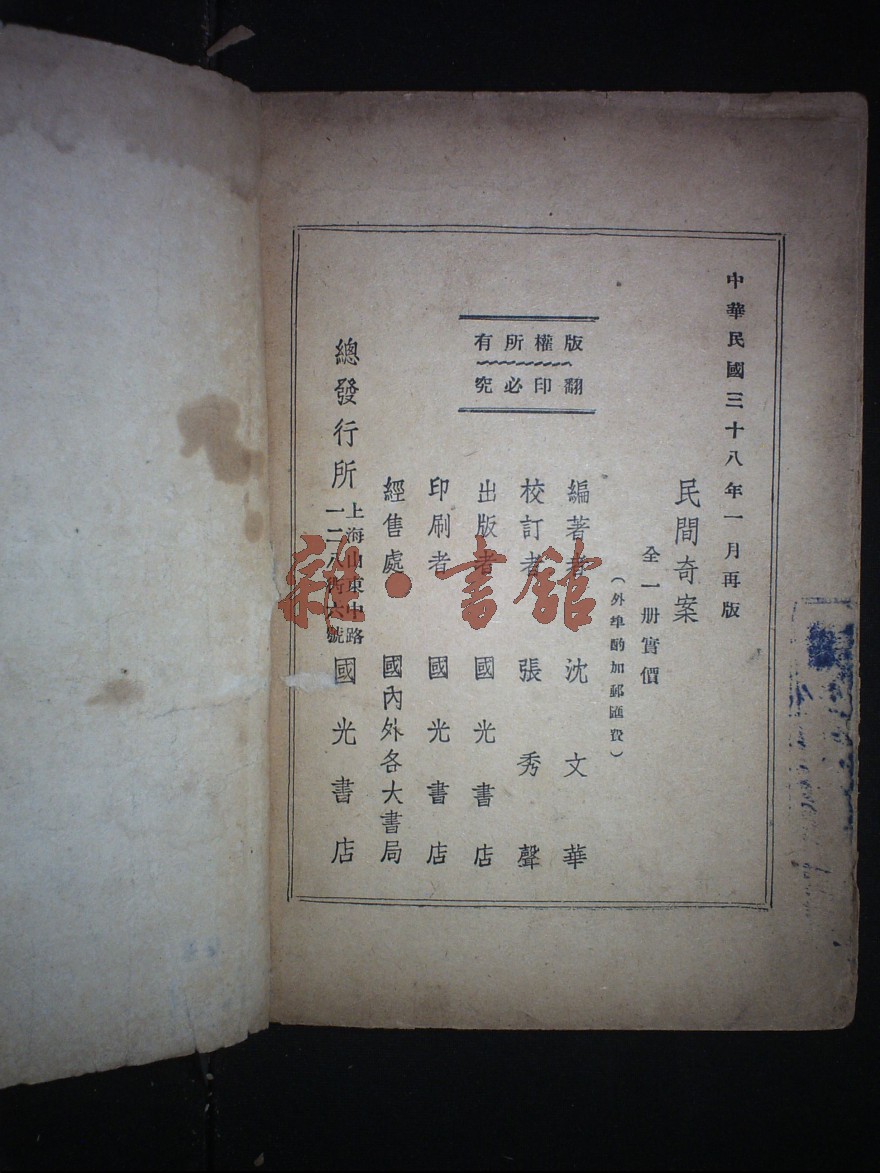 中華民國三十八年一月再版
民間奇案
全一册實價
（外埠酌加郵匯費）
版權所有
翻印必究
編著者 沈文華
校訂者 張秀聲
出版者 國光書店
印刷者 國光書店
經售處 國內外各大書局
總發行所 上海山東中路一二八衖六號 國光書店
雜·書館